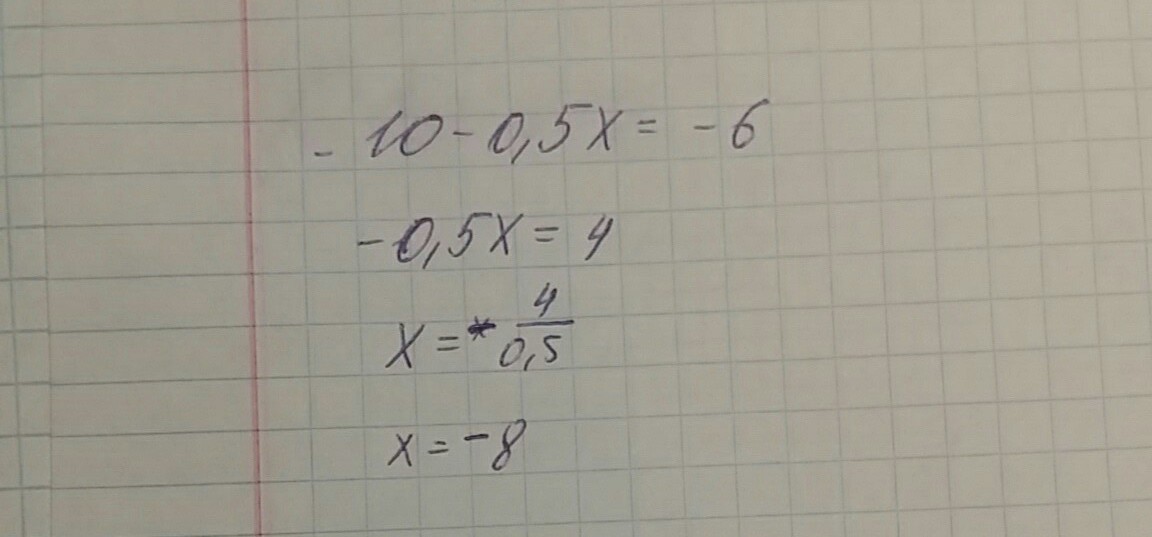 - 10 - 0,5x = - 6
- 0,5x = 4
x = - 4/0,5
x = - 8